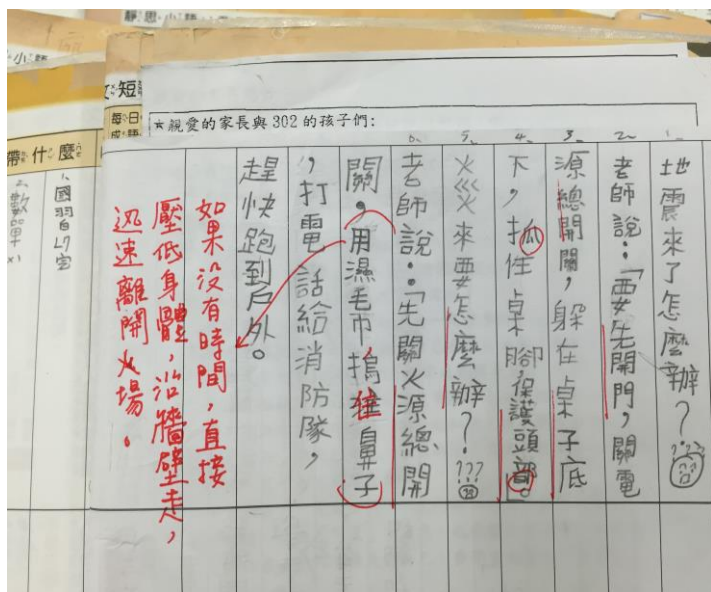 靜思小語
小語
短
每日
成語
★親愛的家長與302的孩子們:
帶什麼
1、國習
2、數
1、
地震來了怎麼辦?
2、
老師說:「要先開門,關電
3、
源總開關,躲在桌子底
4、
下,抓住桌腳,保護頭部。」
5、
火災來要怎麼辦????
6、
老師說:「先關火源總開
關,用濕毛巾摀住鼻子
,打電話給消防隊,
趕快跑到戶外。
如果沒有時間,直接
壓低身體,沿牆壁走,
迅速離開火場。